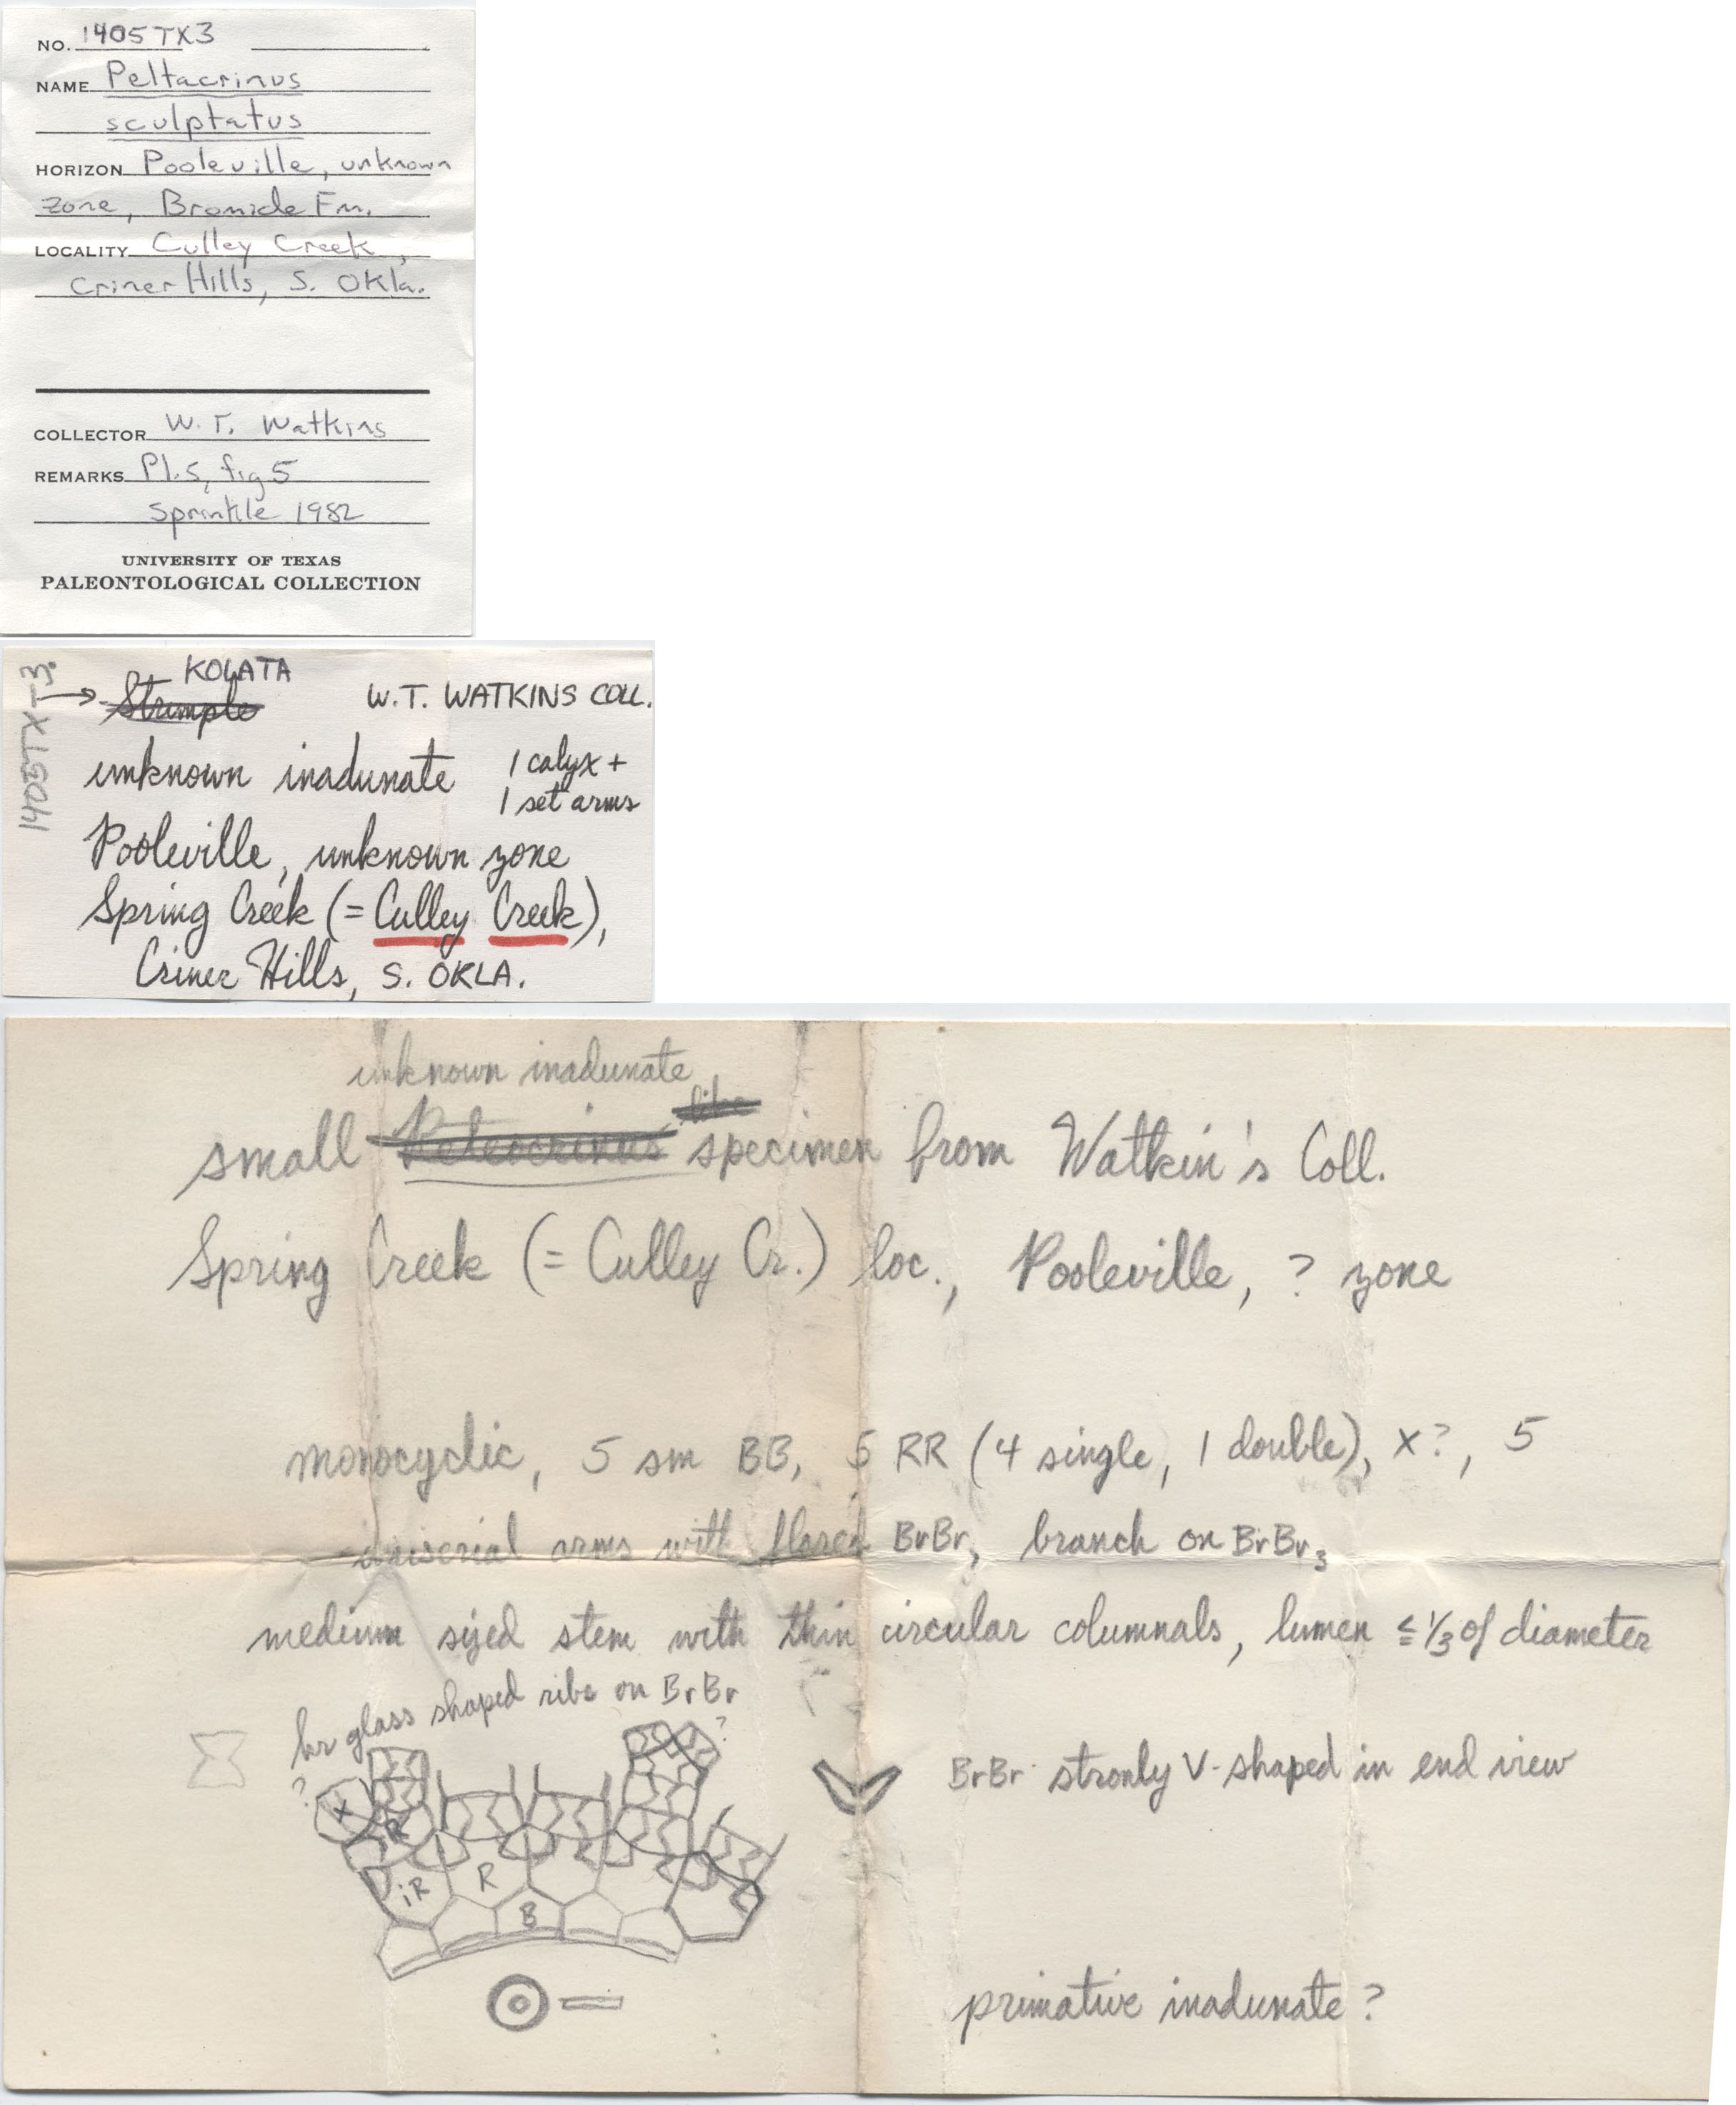 NO. 1405TX3
NAME Peltacrinus
sculptatus
HORIZON Pooleville, unknown
zone, Bromide Fm.
LOCALITY Culley Creek,
Criner Hills, S. Okla.
COLLECTOR W. T. Watkins
REMARKS Pl. 5, fig 5
Sprinkle 1982
UNIVERSITY OF TEXAS
PALEONTOLOGICAL COLLECTION
1405TX3
KOLATA
→ Strimple W.T. WATKINS COLL.
unknown inadunate 1 calyx +
1 set arms
Pooleville, unknown zone
Spring Creek (= Culley Creek),
Criner Hills, S. OKLA.
unknown inadunate
like
small specimen from Watkin's Coll.
Spring Creek (= Culley Cr.) loc., Pooleville, ? zone
monocyclic, 5 sm BB, 5 RR (4 single, 1 double), x?, 5
uniserial arms with flared BrBr, branch on BrBr3
medium sized stem with thin circular columnals, lumen ≤ 1/3 of diameter
hr glass shaped ribs on BrBr
?
?
BrBr stronly V-shaped in end view
X
R
iR
R
B
primative inadunate?